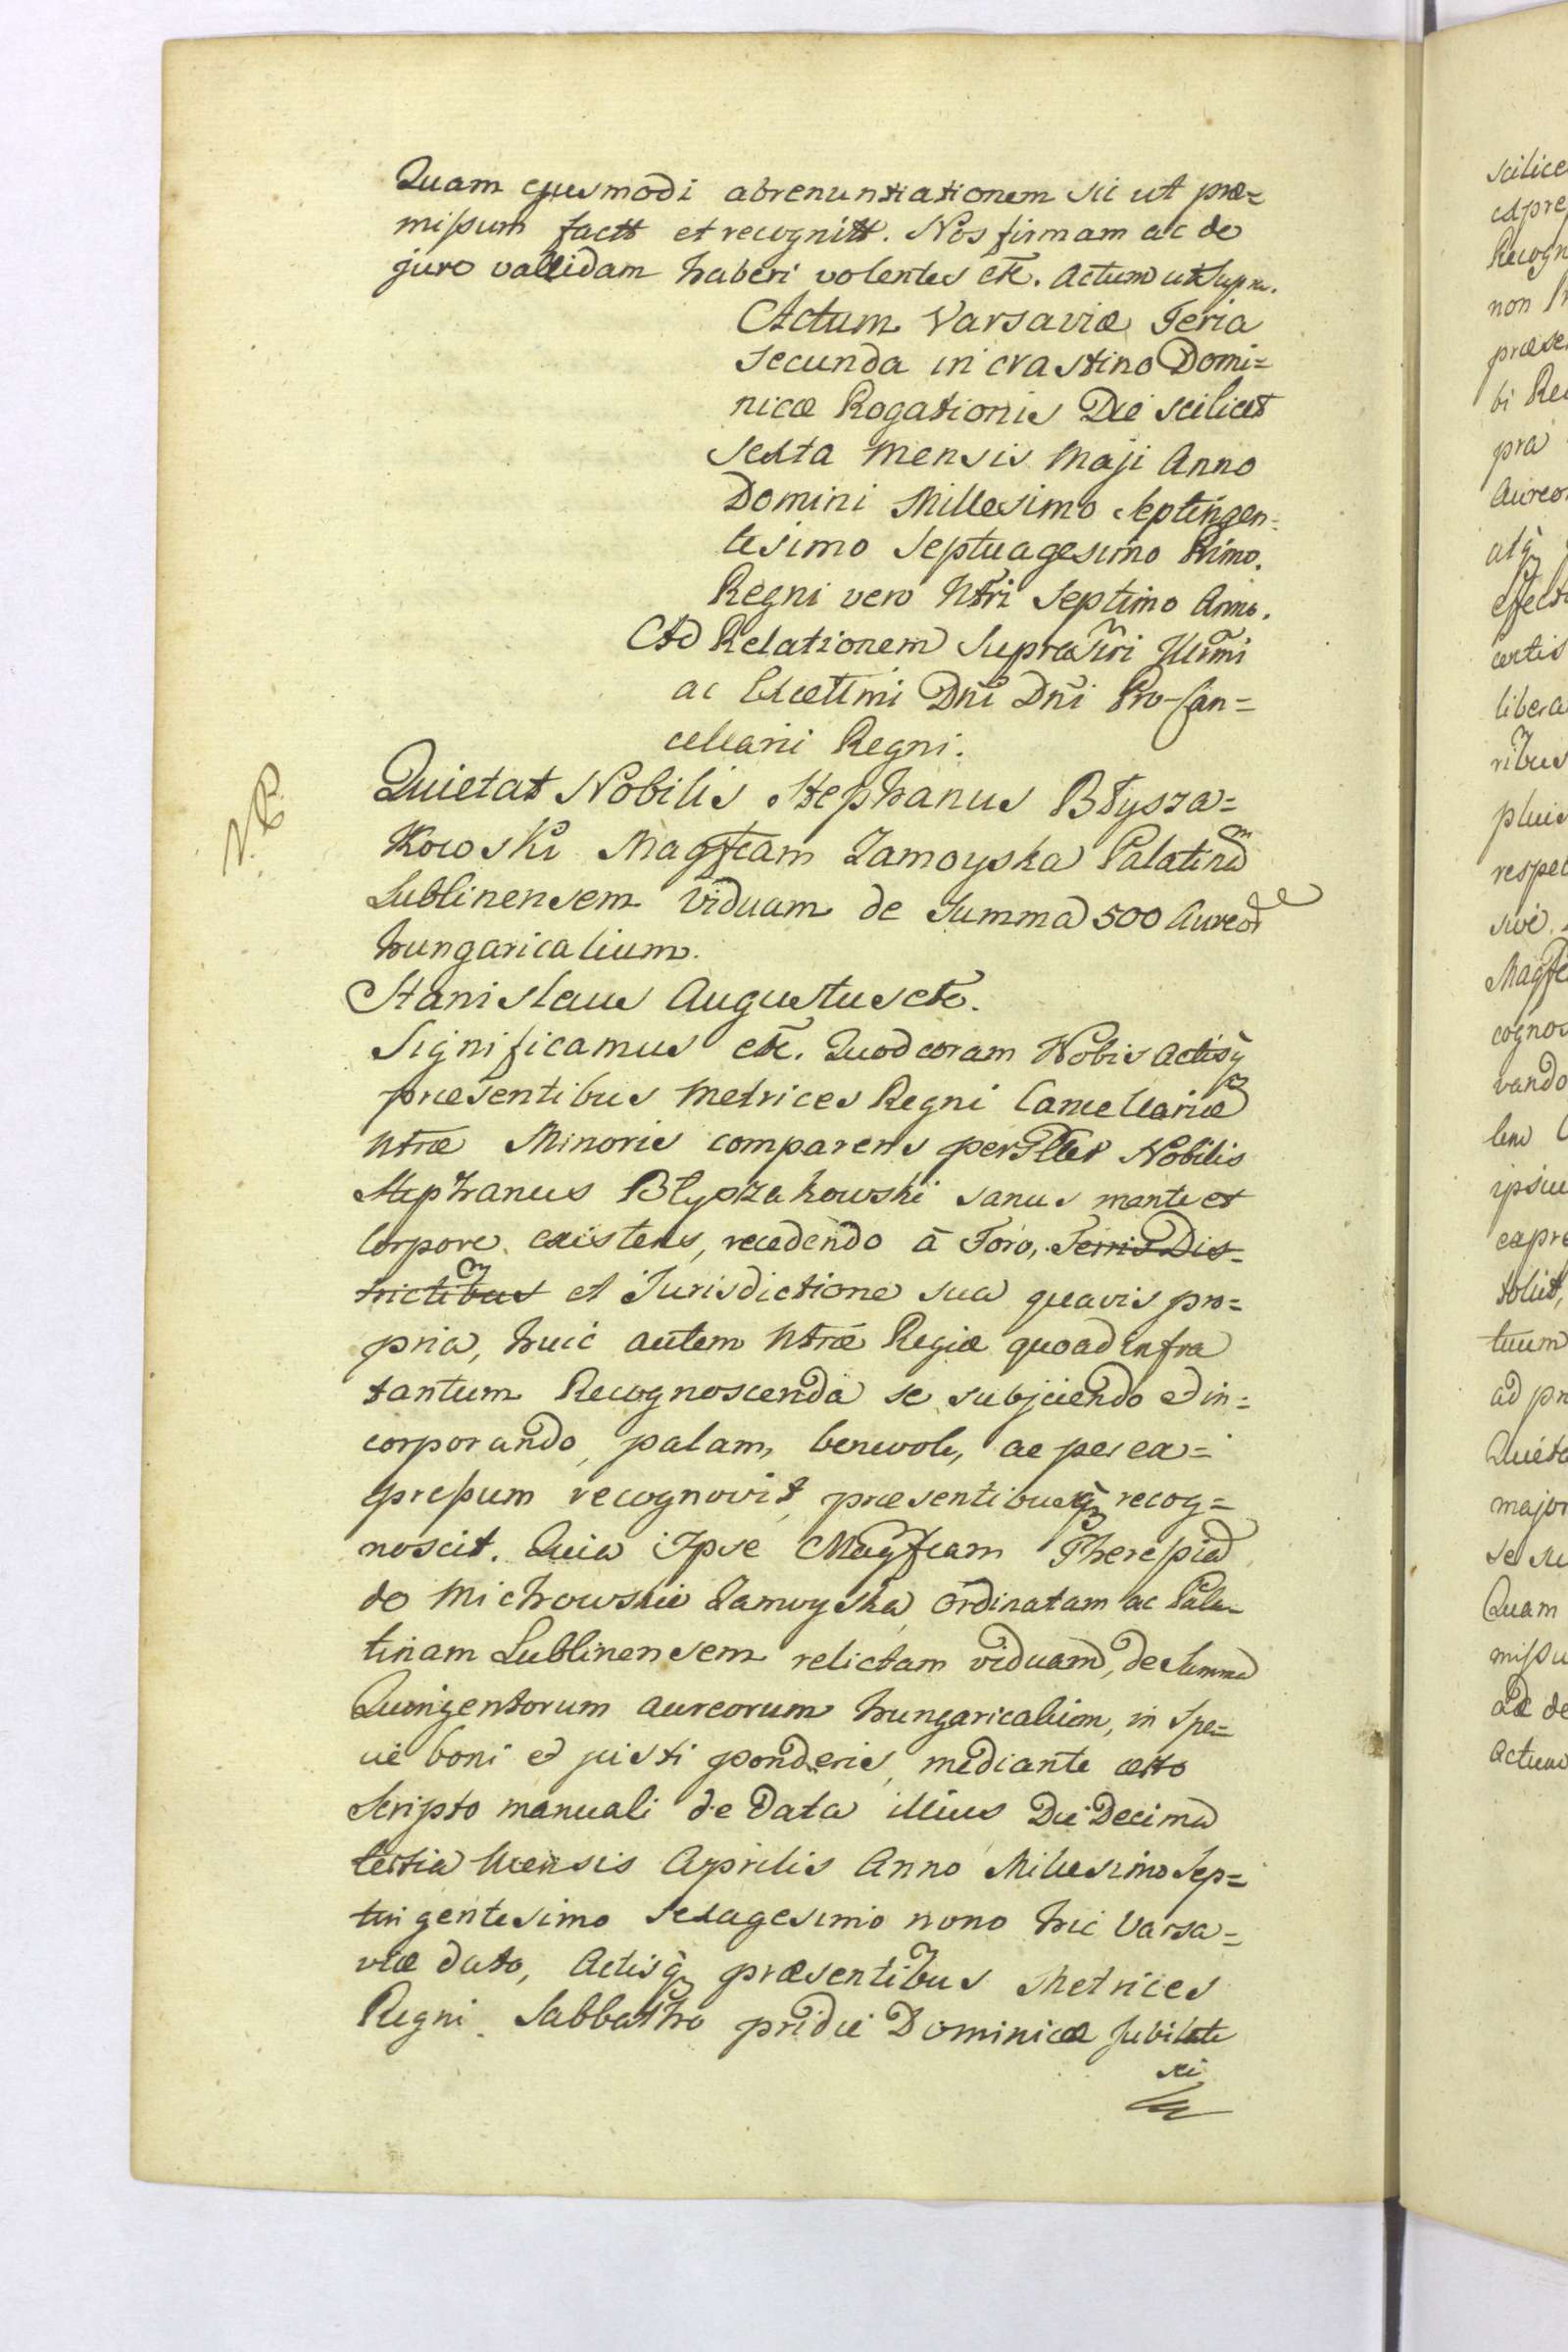 Quam ejusmodi abrenuntiationem sic ut præ=
missum factt et recognitt. Nos firmam ac de
jure vallidam haberi volentes etc. Actum ut Supra.
Actum Varsaviæ Feria
Secunda in crastino Domi=
nicæ Rogationis Die scilicet
sexta Mensis Maji Anno
Domini Millesimo Septingen=
tesimo Septuagesimo Primo.
Regni vero Ntri Septimo Anno.
Ad Relationem Suprascri Illrmi
ac Excellmi Dni Dni Pro-Can=
cellarii Regni.
N.B.
Quietat Nobilis Stephanus Błysza=
Kowski Magfcam Zamoyska Palatina
Lublinensem Viduam de Summa 500 Aureor
hungaricalium.
Stanislaus Augustus etc.
Significamus etc. Quod coram Nobis Actisq
præsentibus Metrices Regni Cancellariæ
Ntræ Minoris comparens perslter Nobilis
Stephanus Blyszakowski sanus mente et
Corpore existens, recedendo à Foro, Terris Dis=
trictibus et Jurisdictione sua quavis pro=
pria, huic autem Ntræ Regiæ quoad infra
tantum Recognoscenda se subjiciendo et in=
corporando, palam, benevole, ac per ex=
pressum recognovit, præsentibusq recog=
noscit. Quia Ipse Magfcam Theressia
de Michowskie Zamoyska, Ordinatam ac Pala=
tinam Lublinensem relictam viduam, de Summa
Quingentorum aureorum hungaricalium, in spe=
cie boni et justi ponderis, mediante certo
Scripto manuali de Data illius Die Decima
tertia Mensis Aprilis Anno Millesimo Sep=
tingentesimo sexagesimo nono hic Varsa=
viæ dato, Actisq præsentibus Metrices
Regni Sabbatho pridie Dominicæ Jubilate
sci